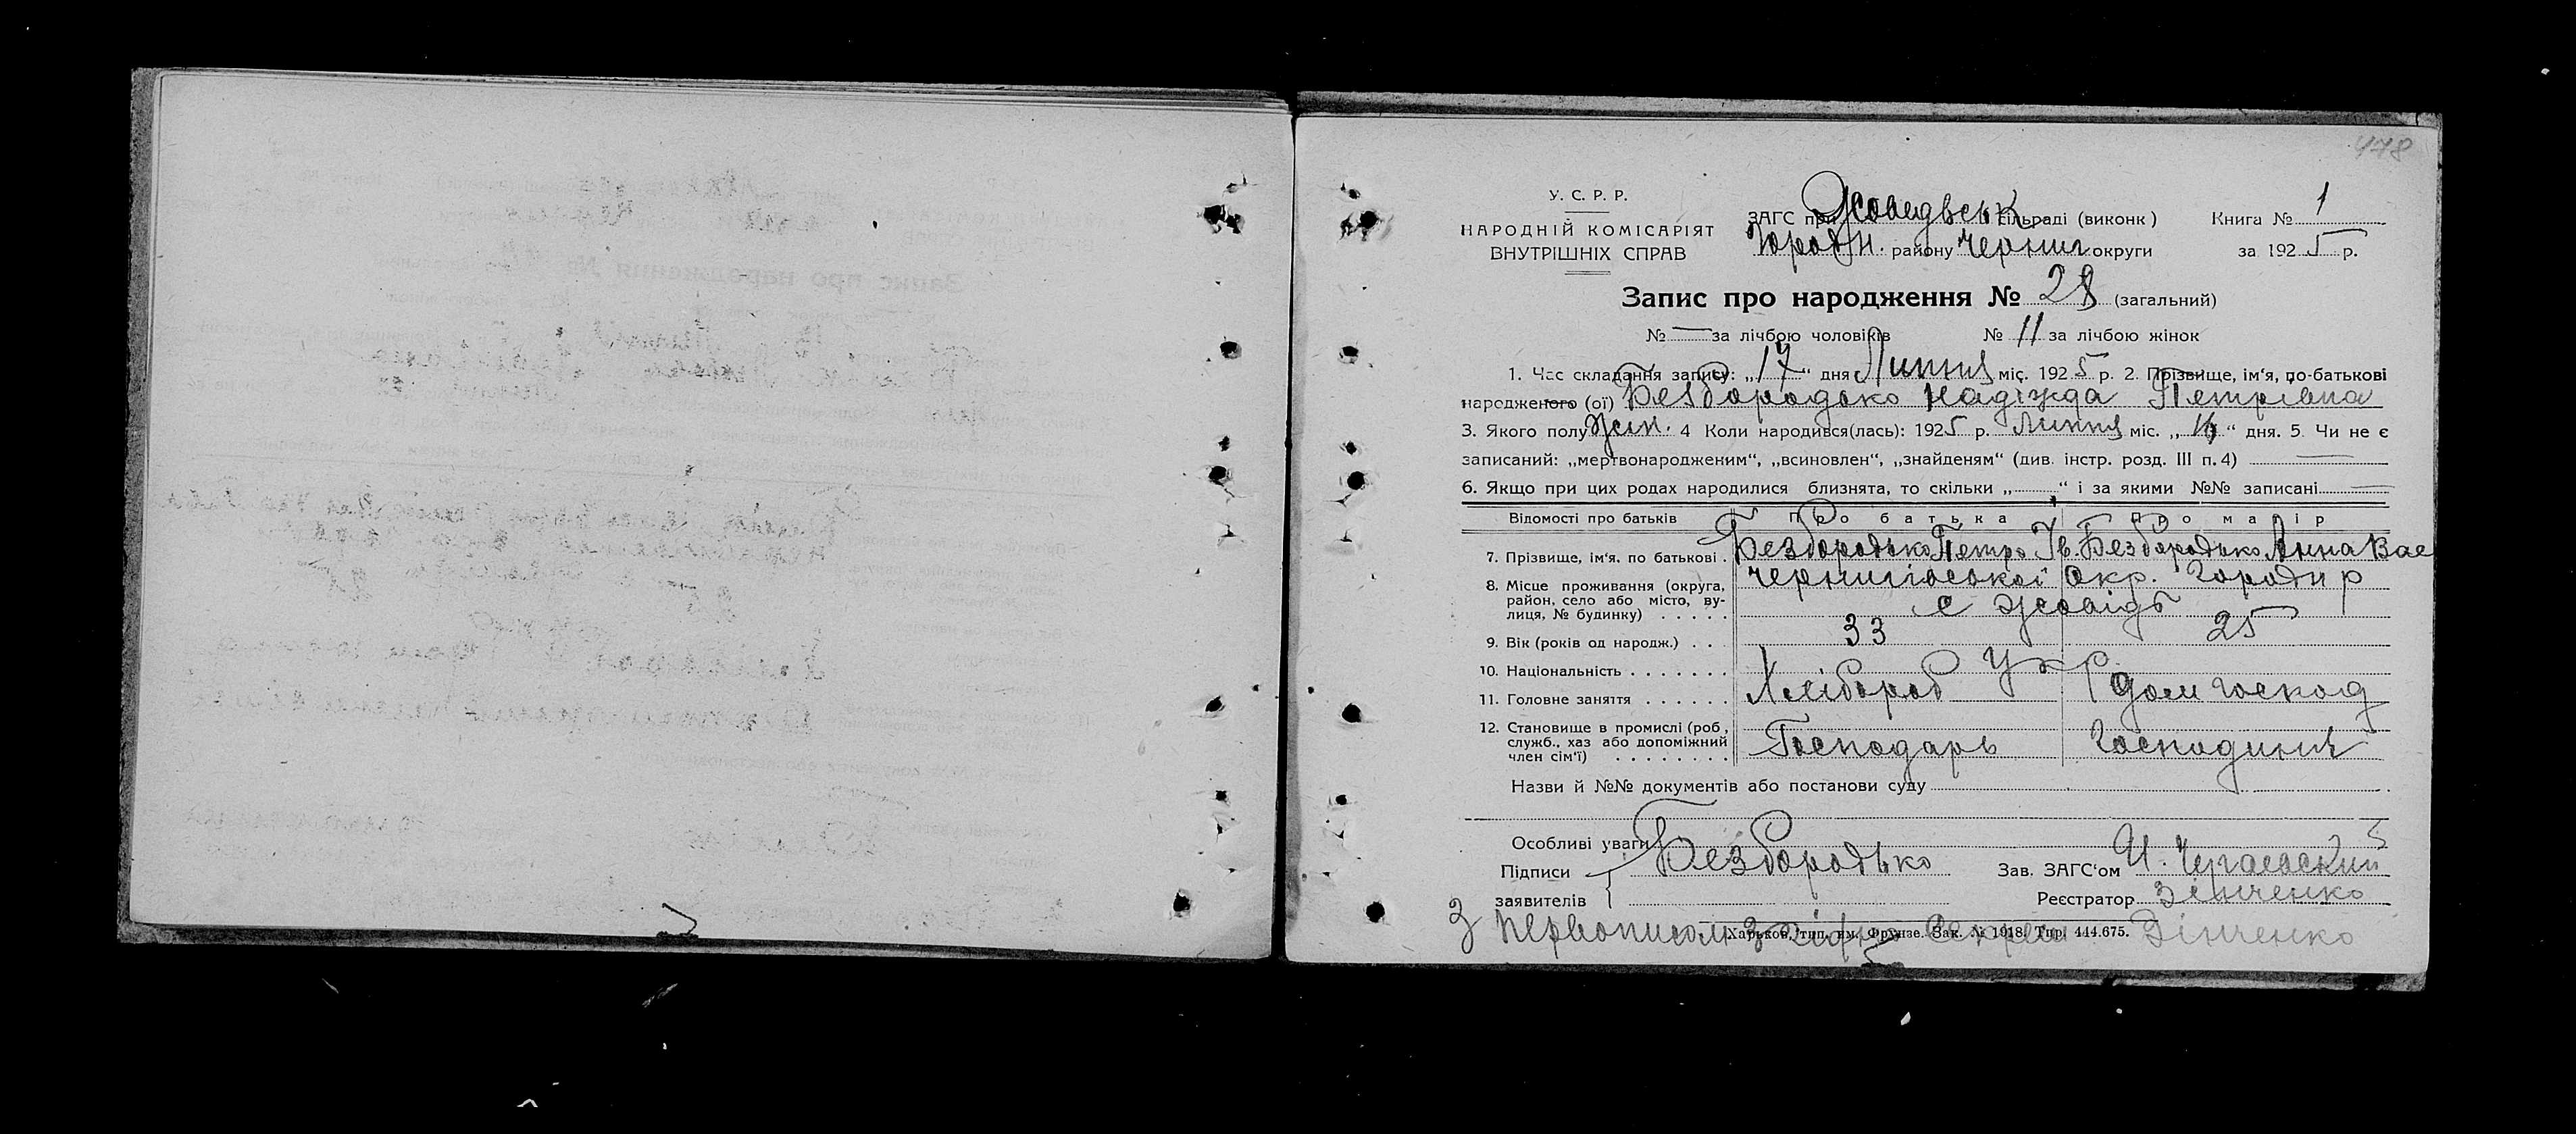 478
У. С. Р. Р.
НАРОДНІЙ КОМІСАРІЯТ
ВНУТРІШНІХ СПРАВ
ЗАГС при Жоведвськ сільраді (виконк) Книга № 1
Городн. району Черниг округи за 1925 р.
Запис про народження № 28 (загальний)
№ — за лічбою чоловіків № 11 за лічбою жінок
1. Час складання запису: „17“ дня Липня міс. 1925 р. 2. Прізвище, ім'я, по-батькові
народженого (ої) Безбородько Надіжда Петрівна
3. Якого полу жін. 4 Коли народився(лась): 1925 р. Липня міс. „ “ дня. 5. Чи не є
записаний: „мертвонародженим“, „всиновлен“, „знайденям“ (див. інстр. розд. III п. 4) —
6. Якщо при цих родах народилися близнята, то скільки „ “ і за якими №№ записані —
Відомості про батьків Про батька Про матір
7. Прізвище, ім'я. по батькові . Безбородько Петро Ів. Безбородько Анна Вас
8. Місце проживання (округа, район, село або місто, вулиця, № будинку) . . . . . Чернигівської Окр. Городн р
с Жовідь
9. Вік (років од народж.) . . . 33 25
10. Національність . . . . . . . Укр.
11. Головне заняття . . . . . . Хлібороб Дом господ
12. Становище в промислі (роб, служб., хаз або допоміжний член сім'ї) . . . . . . . . Господарь Господиня
Назви й №№ документів або постанови суду
Особливі уваги
Підписи Безбородько Зав. ЗАГС'ом
заявителів Реєстратор Зінченко
З первописом згідно Секрет Зінченко
Харьков, тип. им. Фрунзе. Зак. № 1018. Тир. 444.675.